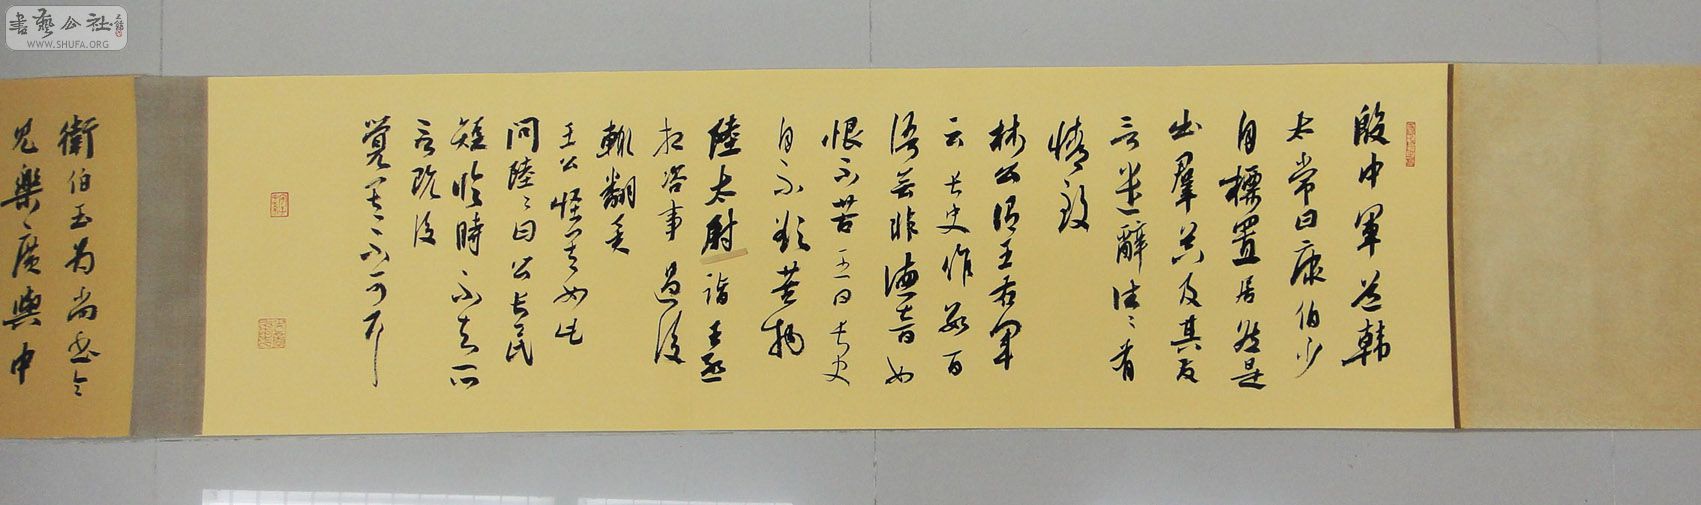 殷中軍道韓
太常曰康伯少
自標置居然是
出羣器及其發
言遣辭往〻有
情致
林公謂王右軍
云長史作數百
語無非德音如
恨不苦王曰長史
自不欲苦物
陸太尉詣王丞
相咨事過後
輒翻異
王公怪其如此
問陸〻曰公長民
短臨時不知所
言既後
覺其不可耳
衛伯玉為尚書令
見樂廣與中
書藝公社
WWW.SHUFA.ORG